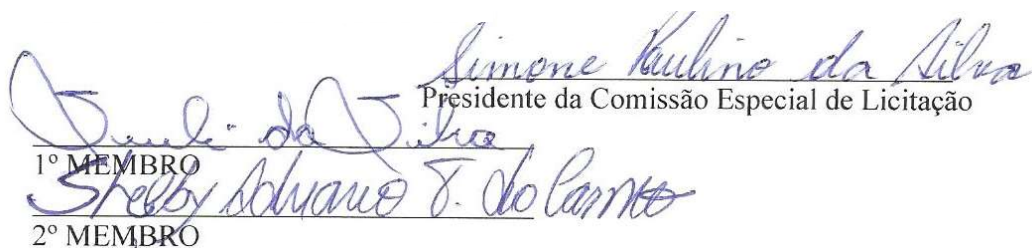 Simone Paulino da Silva
Presidente da Comissão Especial de Licitação
da Silva
1º MEMBRO
Shelby Adriano T. do Carmo
2º MEMBRO